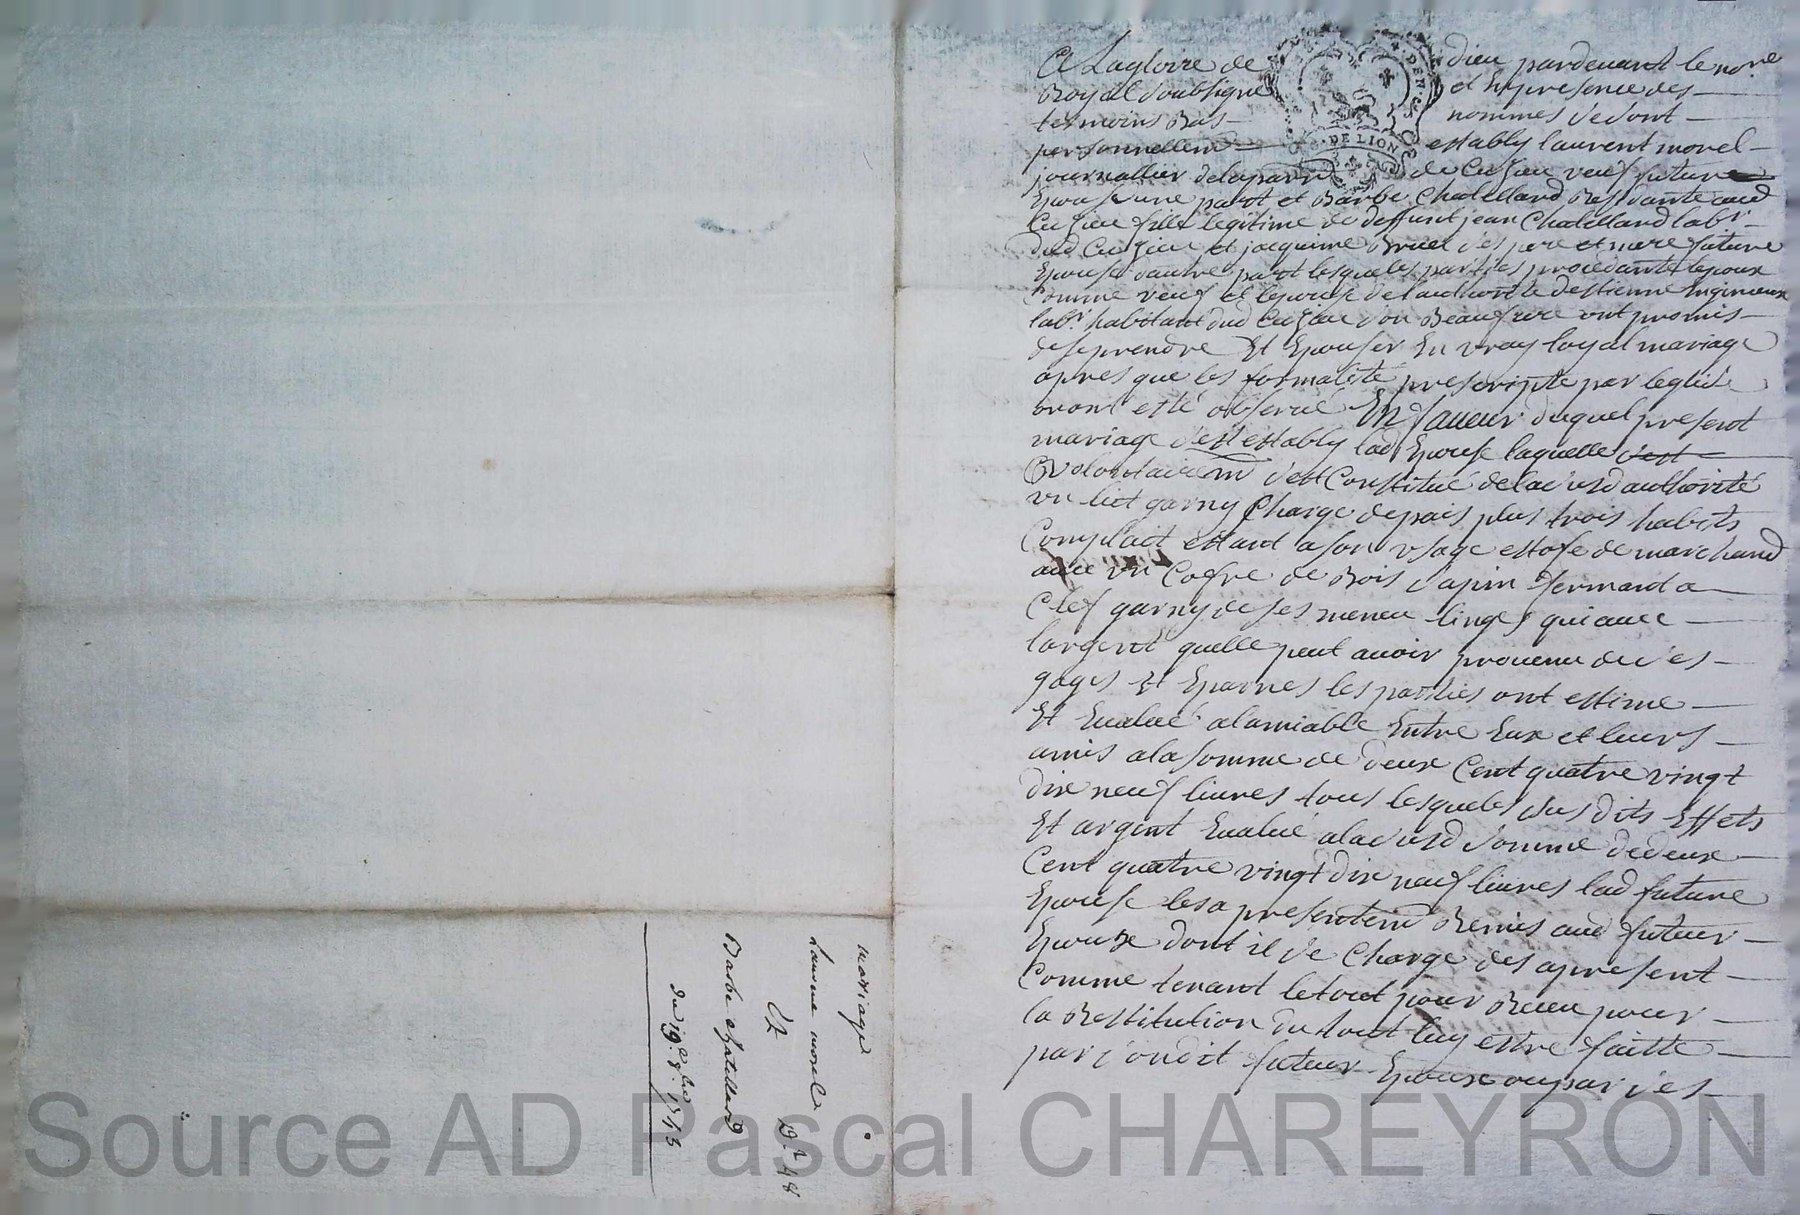 mariage
Laurent morel
Et
Barbe chatellard
du 19e 8bre 1743
A Lagloire de dieu pardeuant le nore
Royal soubsigné et En presence des
tesmoins Bas nommes se sont
personnellemt estably laurent morel
journallier delaparr de Cuzieu veuf futur
Epoux une part et Barbe Chatellard Residante aud
Cuzieu fille legitime de deffunt jean Chatellard labr
dud Cuzieu et jacquime Bruel ses pere et mere future
Epouse dautre part lesquelles parties procedants lepoux
Comme veuf et lepouse de lauthorité destienne
labr habitant dud Cuzieu son Beaufrere ont promis
de se prendre Et Epouser En vray loyal mariage
apres que les formalité prescripte par leglise
oront esté obserué En faueur duquel present
mariage s'est estably lad Epouse laquelle s'est
volontairemt s'est Constitué de la susd authorité
un lict garny Charge depais plus trois habits
Complait estant a son usage estofe de marchand
auec un Cofre de Bois sapin fermant a
Clef garny de ses meneu linges qui auec
largent quelle peut auoir prouenu de ses
gages Et Eparnes les parties ont estime
Et Eualué alamiable Entre Eux et leurs
amis a la somme de deux Cent quatre vingt
dix neuf liures tous lesquelles sus dits Effets
Et argent Eualué a la susd somme de deux
Cent quatre vingt dix neuf liures lad future
Epouse les a presentemt Remis aud futur
Epoux dont il se Charge des apresent
Comme tenant letout pour Receu pour
la Restitution du tout luy estre faitte
par sondit futur Epoux ou par ses
DE LION
Source AD Pascal CHAREYRON